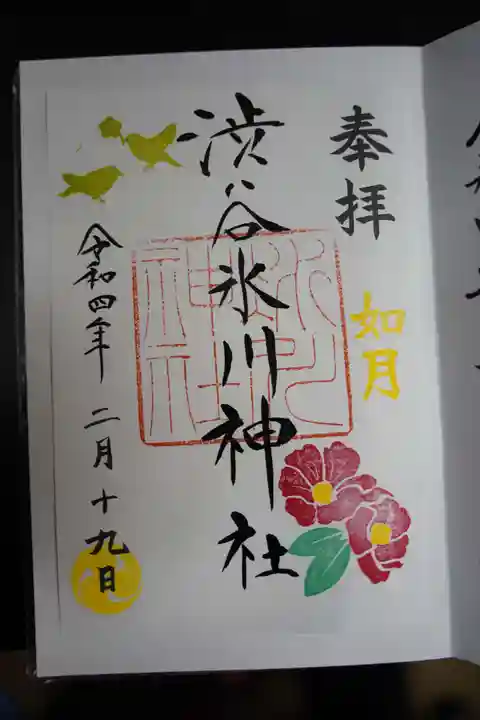 奉拝
如月
渋谷氷川神社
氷川
神社
令和四年二月十九日